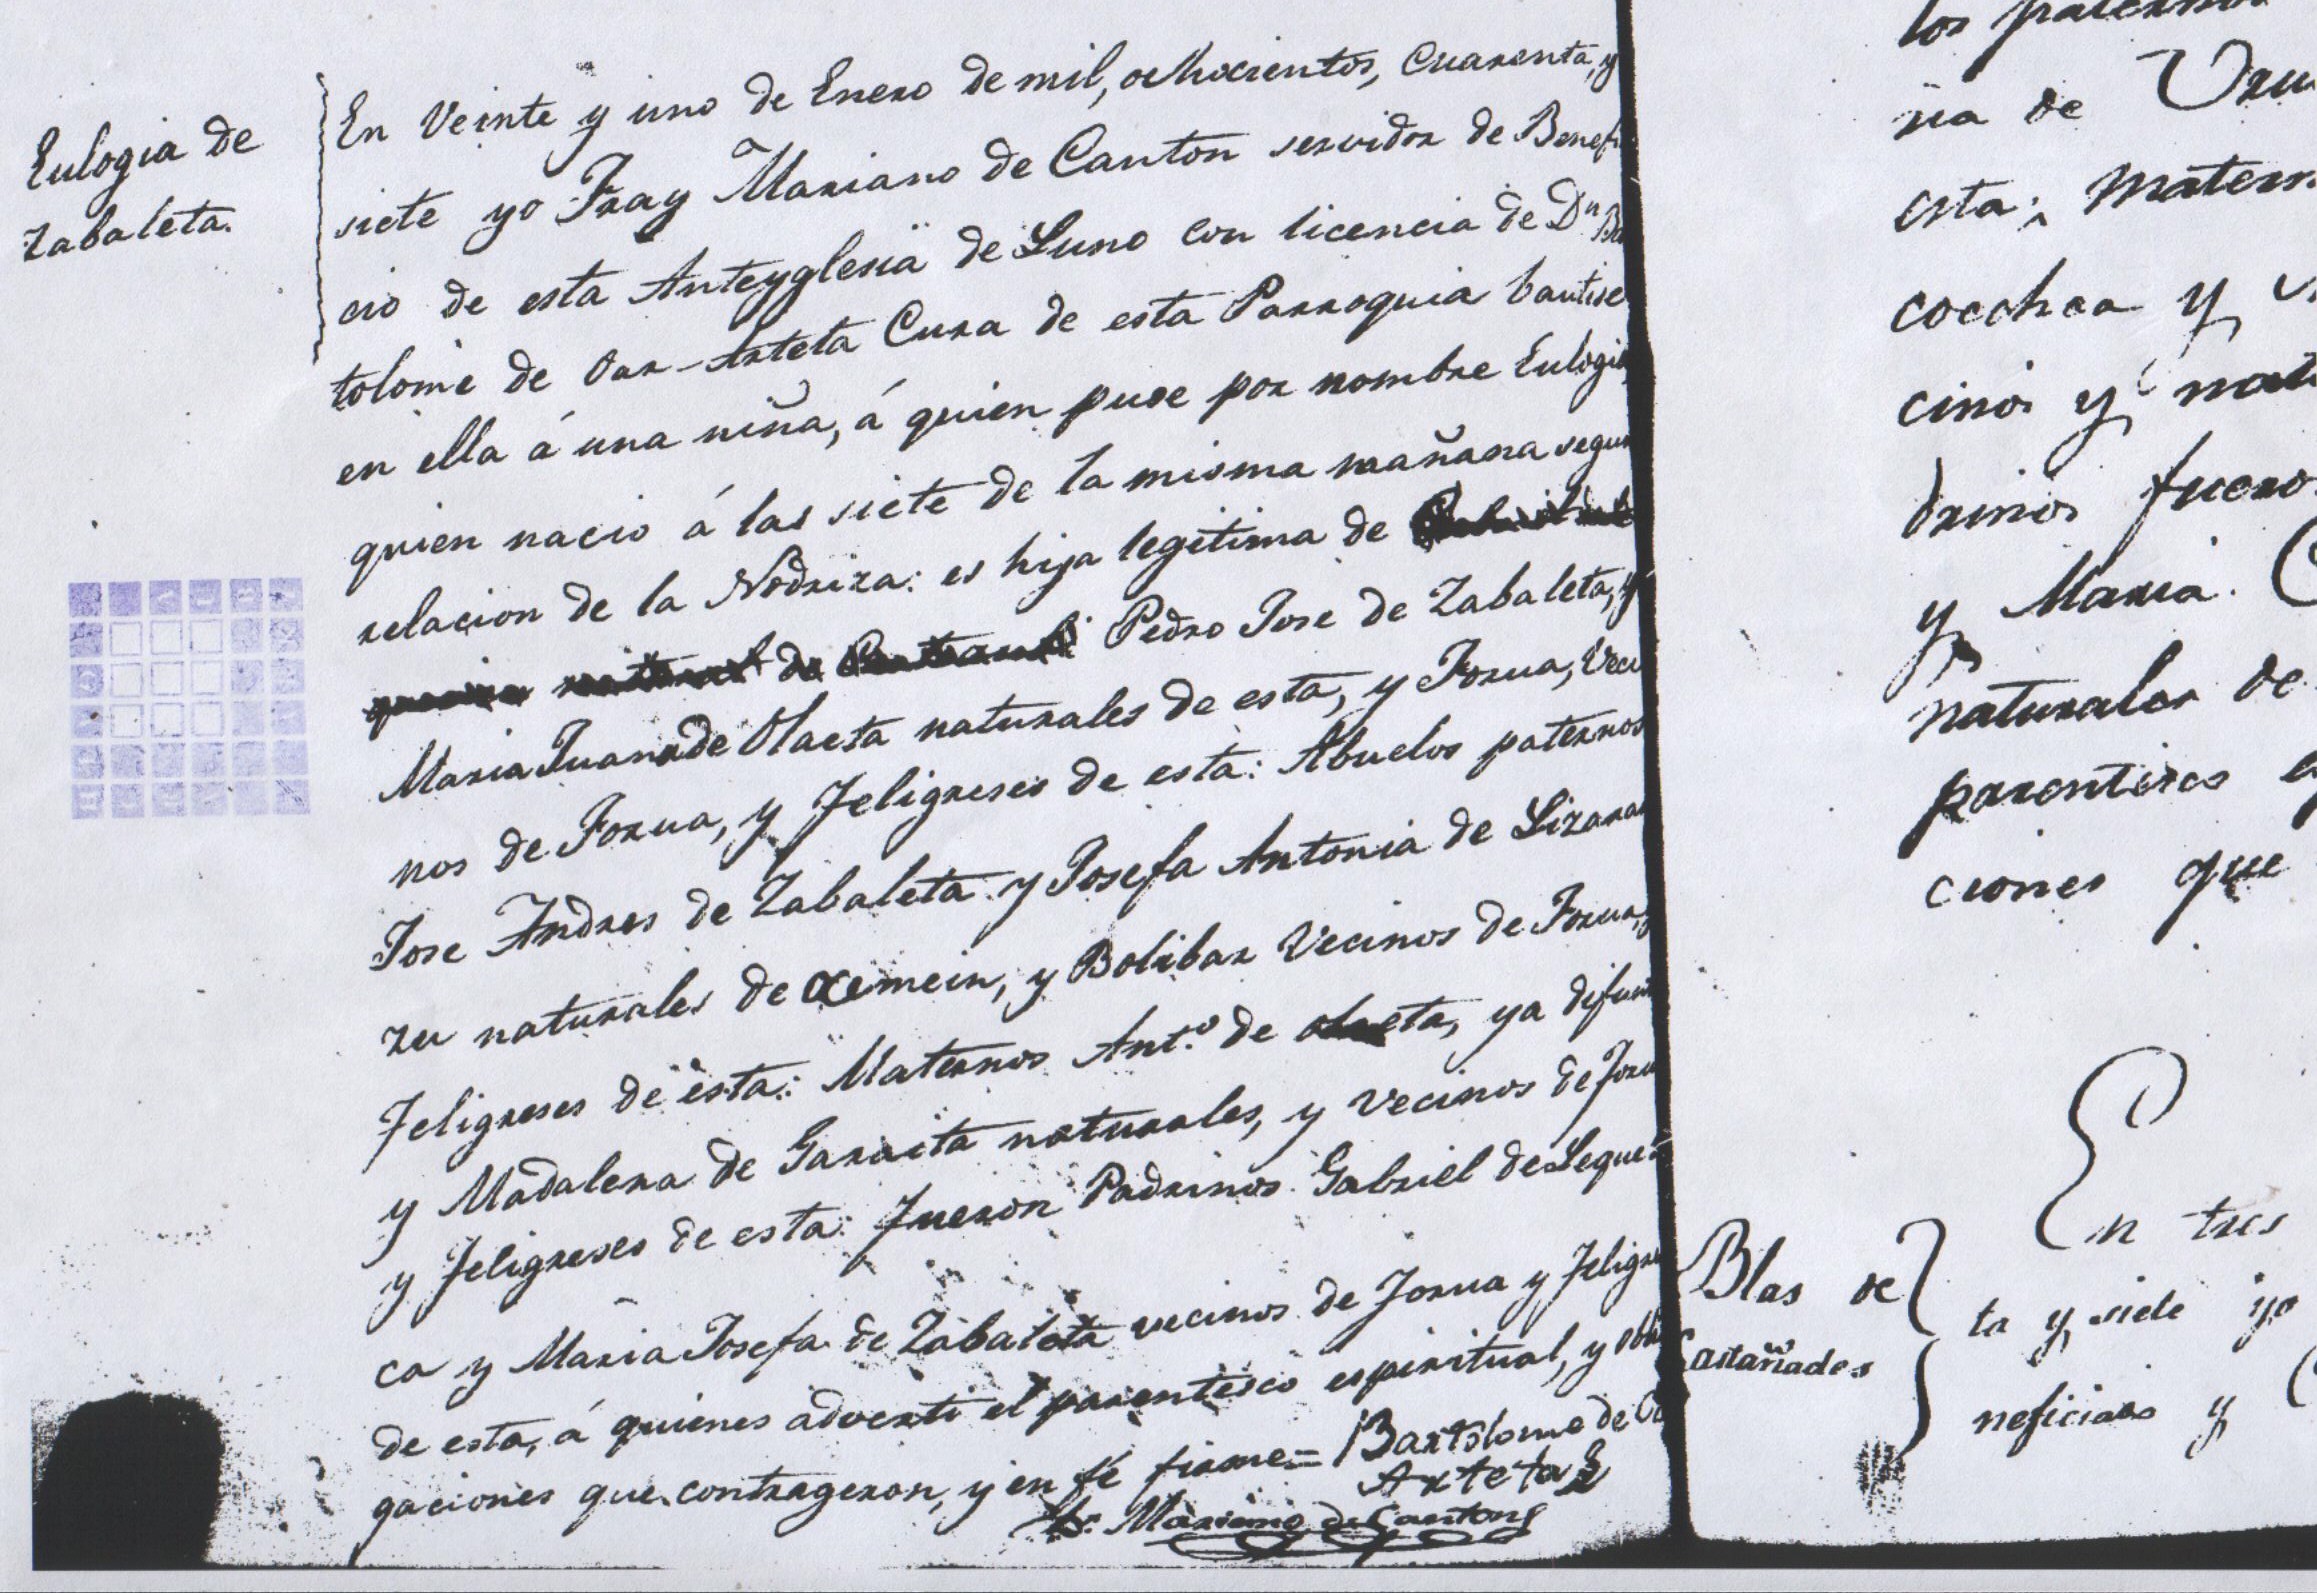 Eulogia de
Zabaleta.
En Veinte y uno de Enero de mil, ochocientos, Cuarenta, y
siete yo Fray Mariano de Canton servidor de Benefi
cio de esta Anteyglesia de Luno con licencia de Dn Ba
tolome de Oar-Arteta Cura de esta Parroquia bautise
en ella á una niña, á quien puse por nombre Eulogia,
quien nacio á las siete de la misma mañana segun
relacion de la Nodriza: es hija legitima de
Pedro Jose de Zabaleta, y
Maria Juana de Olaeta naturales de esta, y Forua, Veci
nos de Forua, y Feligreses de esta: Abuelos paternos
Jose Andres de Zabaleta y Josefa Antonia de Lizara
zu naturales de Xemein, y Bolibar Vecinos de Forua, y
Feligreses de esta: Maternos Ant.º de Olaeta, ya difun
y Madalena de Garaita naturales, y vecinos de Foru
y feligreses de esta: Fueron Padrinos Gabriel de Legue
ca y Maria Josefa de Zabaleta vecinos de Forua y Feligre
de esta, á quienes adverti el parentesco espiritual, y obli
gaciones que contrageron, y en fé firme = Bartolome de O
Arteta
Fr. Mariano de Canton
los paterno
na de
esta; matern
coechea y
cinos y nat
drinos fuero
y Maria.
naturales de
parentesco
ciones que
Blas de
Castañados
En tres
ta y siete yo
neficiado y